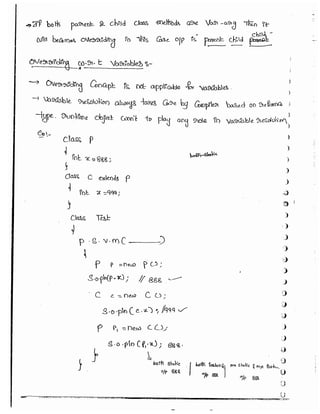 → If both parent & child class methods are Var-arg then it
will becomes overriding in this Case o/p is parent child child
Overriding w.r.t Variables :-
→ Overriding Concept is not applicable for variables.
→ Variable resolution always takes Care by Compiler based on reference
type. Runtime object won't to play any role in Variable resolution.
Eg:-
class P
{
int x = 888;
both-static
}
class C extends P
{
int x = 999;
}
class Test
{
p. s. v. m( )
{
P p = new P();
S.o.pln(p.x); // 888 ✓
C c = new C();
S.o.pln(c.x); //999 ✓
P p1 = new C();
S.o.pln(p1.x); 888.
}
}
both static
o/p 888
o/p 888
o/p 888